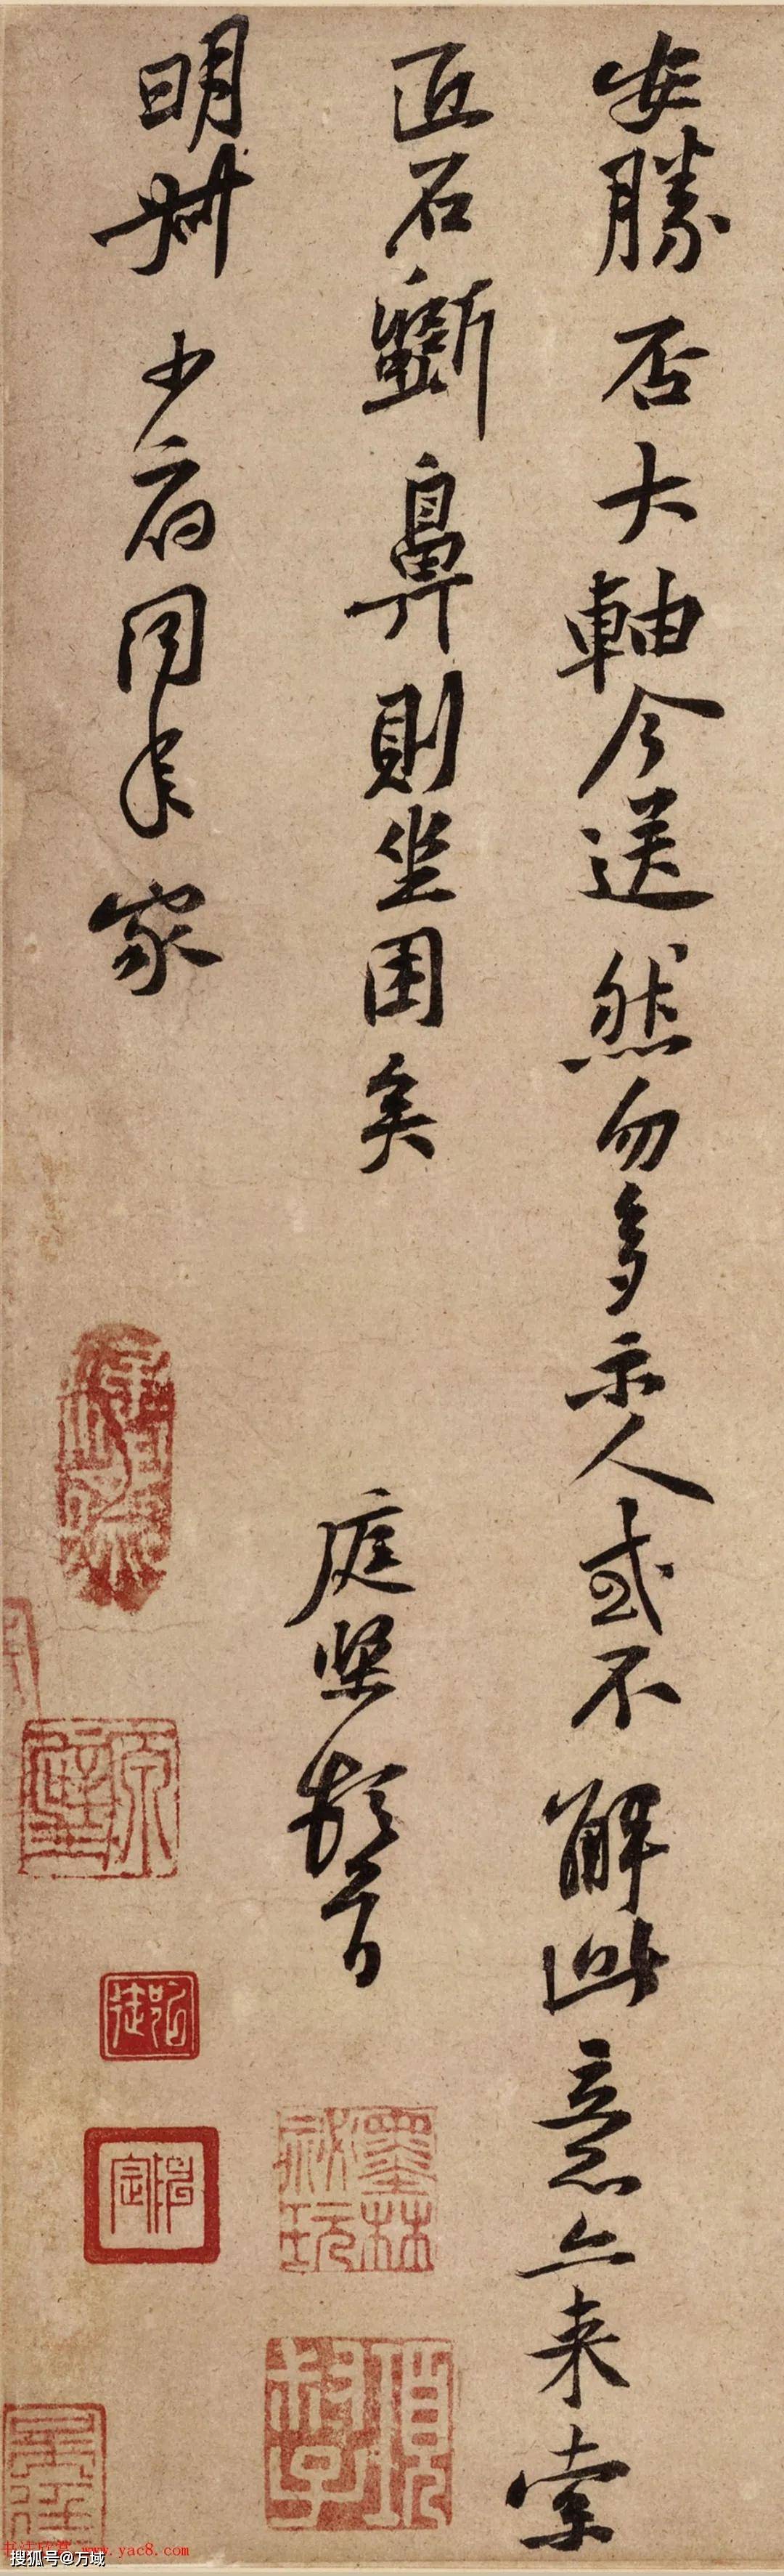 安勝否大軸今送然勿多示人或不解此意亦来索
匠石斵鼻則坐困矣
庭坚頓首
明州少府同年家
墨林祕玩
書法欣賞 www.yac8.com
搜狐号@万域